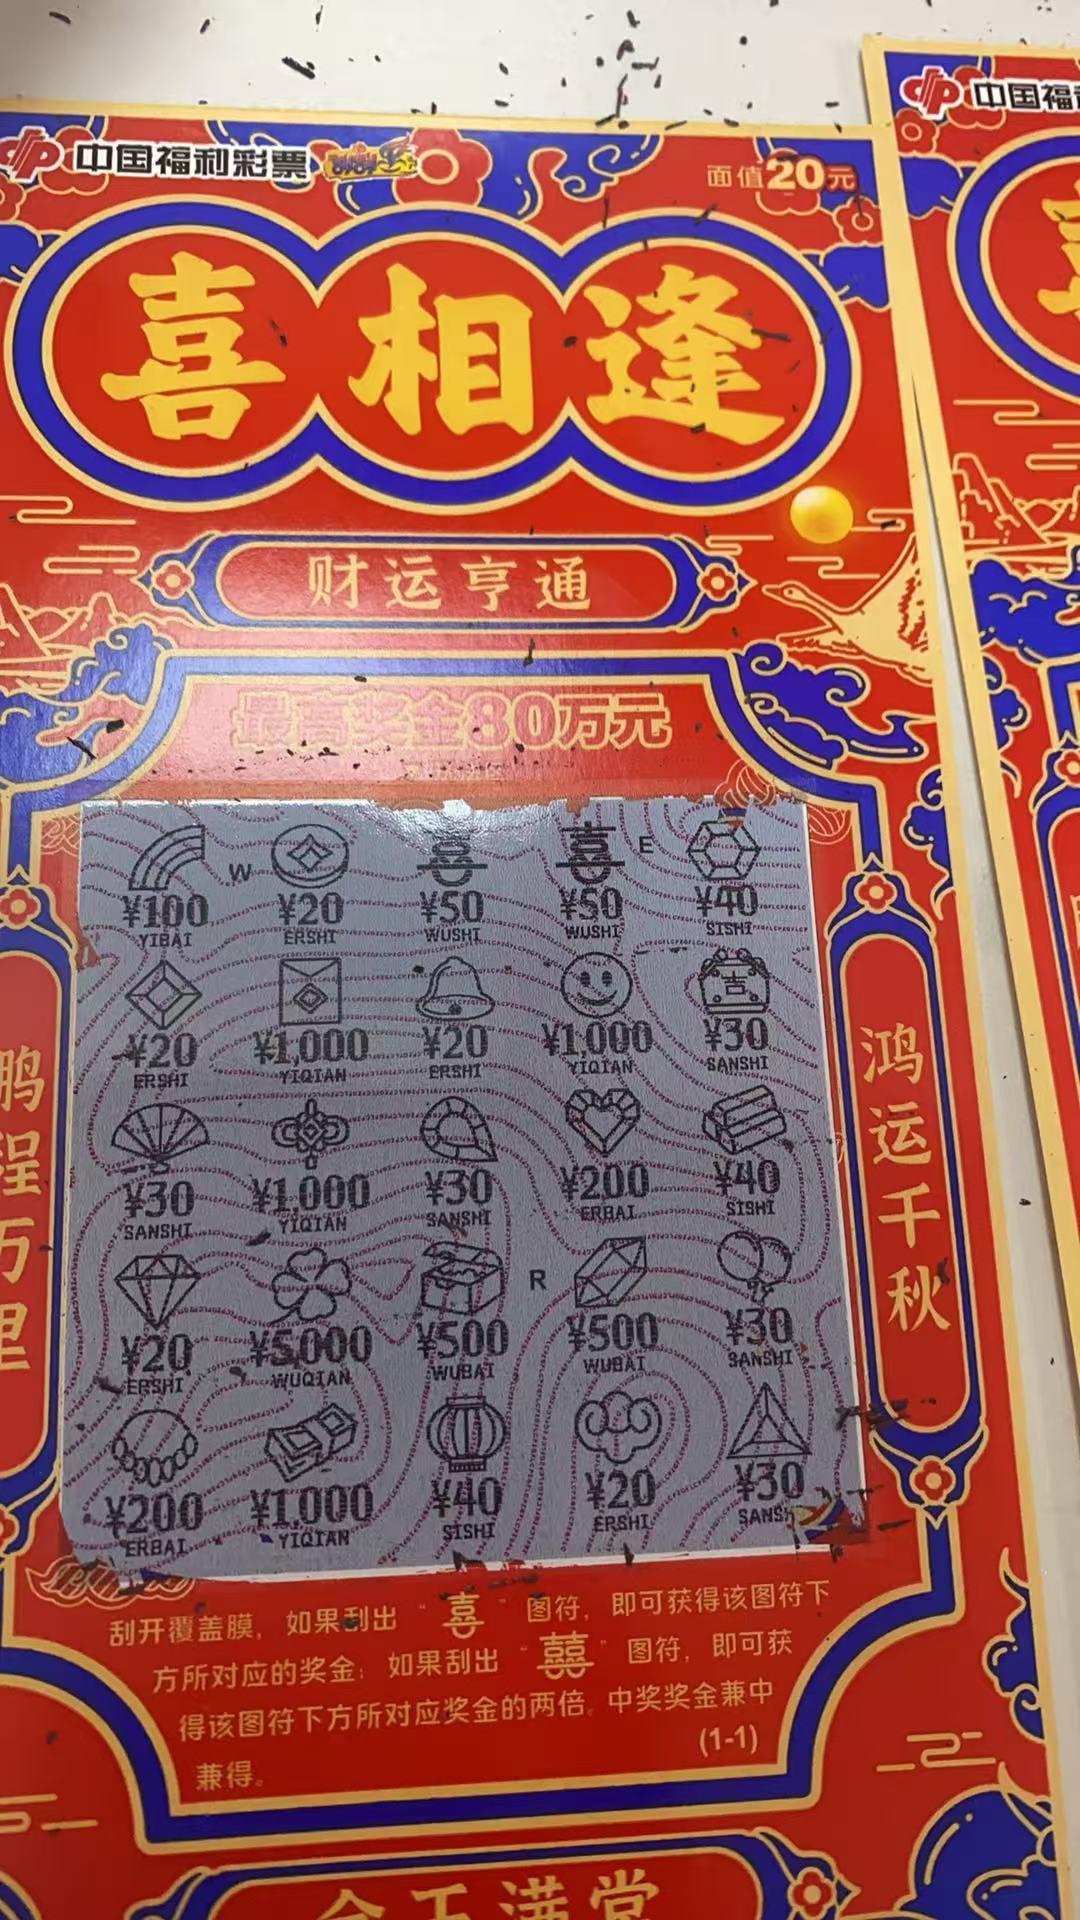 中国福利彩票 刮刮乐 面值20元
中国福
喜相逢
财运亨通
最高奖金80万元
W E
¥100 ¥20 ¥50 ¥50 ¥40
YIBAI ERSHI WUSHI WUSHI SISHI
吉
¥20 ¥1,000 ¥20 ¥1,000 ¥30
ERSHI YIQIAN ERSHI YIQIAN SANSHI
¥30 ¥1,000 ¥30 ¥200 ¥40
SANSHI YIQIAN SANSHI ERBAI SISHI
R
¥20 ¥5,000 ¥500 ¥500 ¥30
ERSHI WUQIAN WUBAI WUBAI SANSHI
¥200 ¥1,000 ¥40 ¥20 ¥30
ERBAI YIQIAN SISHI ERSHI SANSH
鹏程万里
鸿运千秋
刮开覆盖膜，如果刮出“喜”图符，即可获得该图符下
方所对应的奖金；如果刮出“囍”图符，即可获
得该图符下方所对应奖金的两倍。中奖奖金兼中
兼得。
(1-1)
金玉满堂